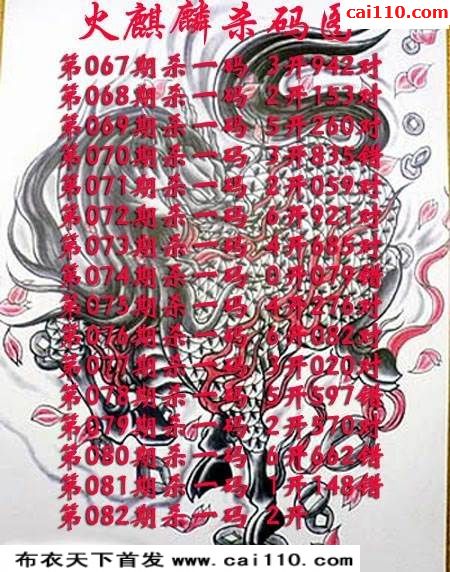 cai110.com
火麒麟杀码区
第067期杀一码 3开942对
第068期杀一码 2开153对
第069期杀一码 5开260对
第070期杀一码 3开835错
第071期杀一码 2开059对
第072期杀一码 6开921对
第073期杀一码 4开685对
第074期杀一码 0开079错
第075期杀一码 4开276对
第076期杀一码 6开082对
第077期杀一码 3开020对
第078期杀一码 5开597错
第079期杀一码 2开570对
第080期杀一码 6开662错
第081期杀一码 1开148错
第082期杀一码 2开
布衣天下首发 www.cai110.com